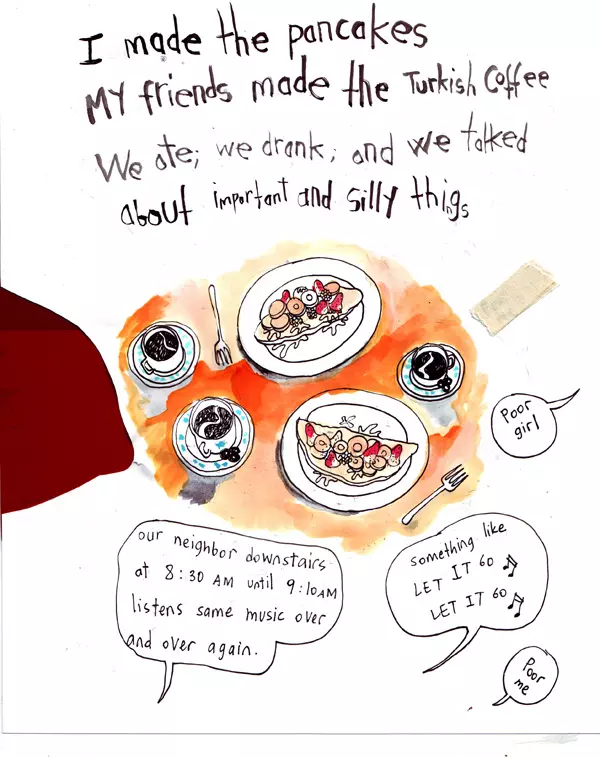 I made the pancakes
MY friends made the Turkish Coffee
We ate; we drank; and we talked
about important and silly things
Poor
girl
our neighbor downstairs
at 8:30 AM until 9:10 AM
listens same music over
and over again.
something like
LET IT GO
LET IT GO
Poor
me